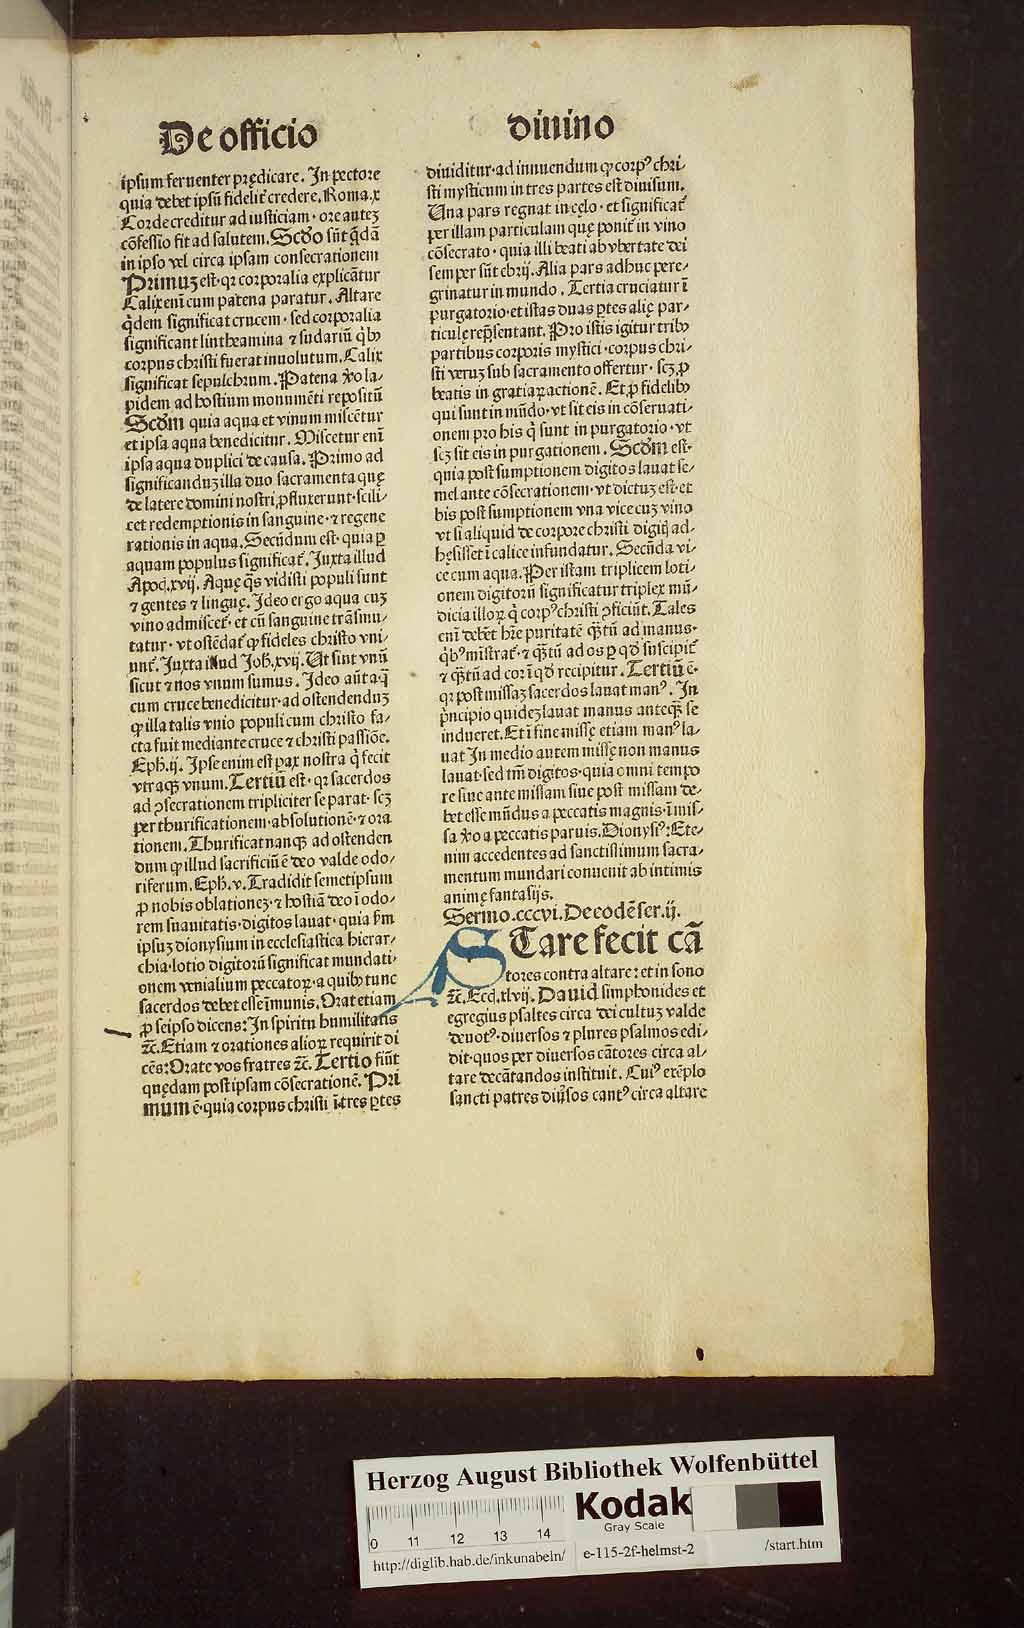 De officio
diuino
ipsum feruenter prędicare. In pectore
quia debet ipsū fidelit᷑ credere. Roma.x
Corde creditur ad iusticiam· ore autez
cōfessio fit ad salutem. Scđo sūt q̄dā
in ipso vel circa ipsam consecrationem
Primuz est· qꝛ corporalia explicātur
Calix eni᷑ cum patena paratur. Altare
q̇dem significat crucem· sed corporalia
significant lintheamina ⁊ sudariū q̇bꝫ
corpus christi fuerat inuolutum. Calix
significat sepulchrum. Patena ꝟo la-
pidem ad hostium monumēti repositū
Scđm quia aqua et vinum miscētur
et ipsa aqua benedicitur. Miscetur eni᷑
ipsa aqua duplici de causa. Primo ad
significanduz illa duo sacramenta quę
de latere domini nostri ꝓfluxerunt· scili-
cet redemptionis in sanguine· ⁊ regene
rationis in aqua. Secūdum est· quia ꝑ
aquam populus significat᷑. Juxta illud
Apoc̄.xvij. Aquę q̄s vidisti populi sunt
⁊ gentes ⁊ linguę. Ideo ergo aqua cuz
vino admiscet᷑· et cū sanguine trāsmu-
tatur· vt ostēdat᷑ ꝙ fideles christo vni-
unt᷑. Juxta illud Joh̄.xvij. Ut sint vnū
sicut ⁊ nos vnum sumus. Ideo aūt aq̄
cum cruce benedicitur· ad ostendenduz
ꝙ illa talis vnio populi cum christo fa-
cta fuit mediante cruce ⁊ christi passiōe.
Eph̄.ij. Ipse enim est pax nostra q̇ fecit
vtraqꝫ vnum. Tertiū est· qꝛ sacerdos
ad ꝯsecrationem tripliciter se parat· scꝫ
per thurificationem· absolutionē· ⁊ ora
tionem. Thurificat nanqꝫ ad ostenden
dum ꝙ illud sacrificiū ē deo valde odo-
riferum. Eph̄.v. Tradidit semetipsum
ꝓ nobis oblationez· ⁊ hostiā deo ī odo-
rem suauitatis· digitos lauat· quia ẜm
ipsuz dionysium in ecclesiastica hierar-
chia· lotio digitorū significat mundati-
onem venialium peccatoꝝ· a quibꝫ tunc
sacerdos debet esse īmunis. Orat etiam
ꝓ seipso dicens: In spiritu humilitatis
⁊c̄. Etiam ⁊ orationes alioꝝ requirit di
cēs: Orate vos fratres ⁊c̄. Tertio fiūt
quędam post ipsam cōsecrationē. Pri
mum ē· quia corpus christi ī tres ꝑtes
diuiditur· ad innuendum ꝙ corpꝰ chri-
sti mysticum in tres partes est diuisum.
Una pars regnat in cęlo· et significat᷑
per illam particulam quę ponit᷑ in vino
cōsecrato· quia illi beati ab vbertate dei
semper sūt ebrij. Alia pars adhuc pere-
grinatur in mundo. Tertia cruciatur ī
purgatorio· et istas duas ꝑtes alię par-
ticulę rep̄sentant. Pro istis igitur tribꝫ
partibus corporis mystici· corpus chri-
sti veruz sub sacramento offertur· scꝫ ꝓ
beatis in gratiaꝝ actionē. Et ꝓ fidelibꝫ
qui sunt in mūdo· vt sit eis in cōseruati-
onem pro his q̇ sunt in purgatorio· vt
scꝫ sit eis in purgationem. Scđm est·
quia post sumptionem digitos lauat se-
mel ante cōsecrationem· vt dictuz est· et
bis post sumptionem vna vice cuz vino
vt si aliquid de corpore christi digit᷑ ad-
hęsisset ī calice infundatur. Secūda vi-
ce cum aqua. Per istam triplicem loti-
onem digitorū significatur triplex mū-
dicia illoꝝ q̇ corpꝰ christi ꝯficiūt. Tales
eni᷑ debēt hr̄e puritatē q̄ꝫtū ad manus·
q̇bꝰ mīstrat᷑· ⁊ q̄ꝫtū ad os ꝑ qđ suscipit᷑
⁊ q̄ꝫtū ad cor ī qđ recipitur. Tertiū ē·
qꝛ post missaz sacerdos lauat manꝰ. In
pͥncipio quidez lauat manus anteq̄ꝫ se
indueret. Et ī fine missę etiam manꝰ la-
uat In medio autem missę non manus
lauat· sed tm̄ digitos· quia omni tempo
re siue ante missam siue post missam de-
bet esse mūdus a peccatis magnis· ī mis-
sa ꝟo a peccatis paruis. Dionysiꝰ: Ete-
nim accedentes ad sanctissimum sacra-
mentum mundari conuenit ab intimis
animę fantasijs.
Sermo.cccvi. De eodē ser.ij.
STare fecit cā
tores contra altare: et in sono
⁊c̄. Ecc̄i.xlvij. Dauid simphonides et
egregius psaltes circa dei cultuz valde
deuotꝰ· diuersos ⁊ plures psalmos edi-
dit· quos per diuersos cātores circa al-
tare decātandos instituit. Cuiꝰ exēplo
sancti patres diu̓sos cantꝰ circa altare
Herzog August Bibliothek Wolfenbüttel
Kodak
Gray Scale
0 11 12 13 14
http://diglib.hab.de/inkunabeln/
e-115-2f-helmst-2
/start.htm